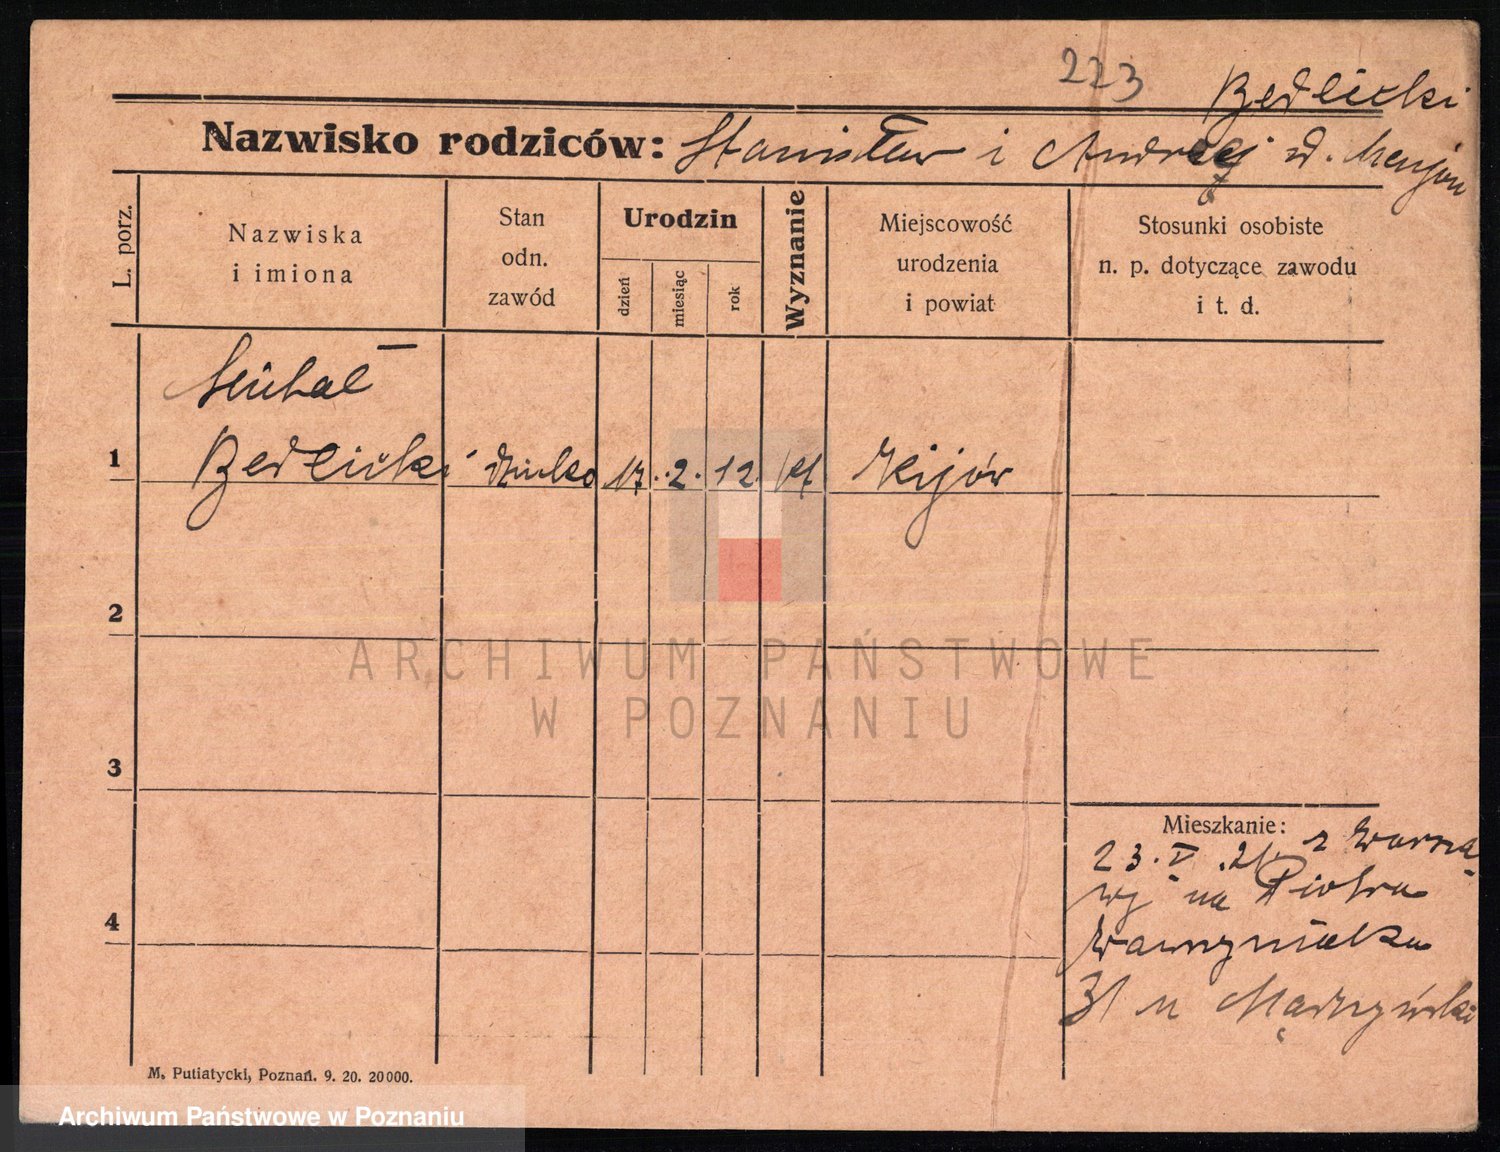 223
Bedlicki
Nazwisko rodziców: Stanisław i Andrzej z d.
L. porz.
Nazwiska i imiona
Stan odn. zawód
Urodzin
dzień
miesiąc
rok
Wyznanie
Miejscowość urodzenia i powiat
Stosunki osobiste n. p. dotyczące zawodu i t. d.
Michał
1 Bedlicki dziecko 17. 2. 12 kt Kijów
2
3
4
Mieszkanie:
23. V. 21. z Warsza-
wy na Piotra
Wawrzyniaka
31 u Mądrzyński
M. Putiatycki, Poznań. 9. 20. 20000.
ARCHIWUM PAŃSTWOWE
W POZNANIU
Archiwum Państwowe w Poznaniu